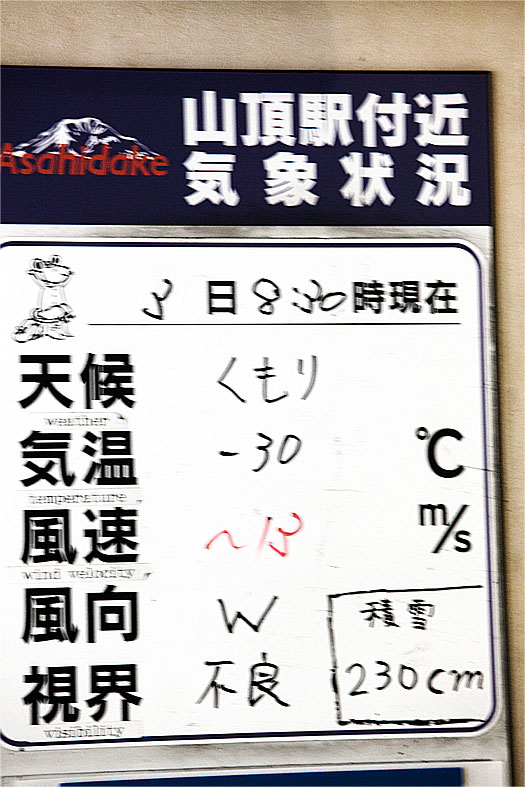 Asahidake
山頂駅付近
気象状況
3日8:30時現在
天候 くもり
weather
気温 -30 ℃
temperature
風速 ~13 m/s
wind velocity
風向 W
積雪
視界 不良
230cm
visibility